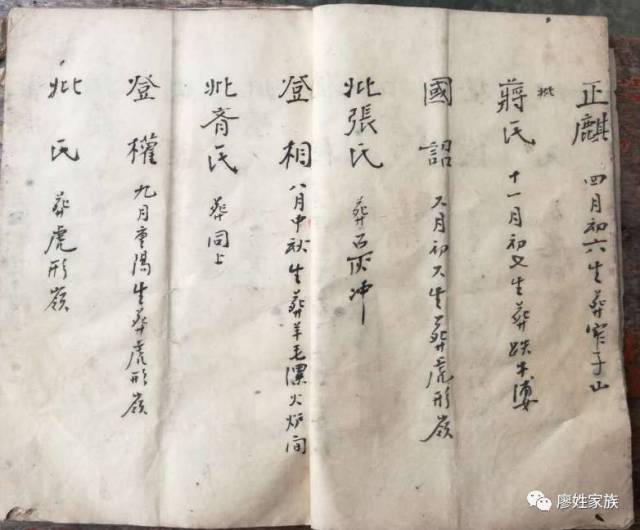 正麒 四月初六生葬窄子山
妣蔣氏 十一月初又生葬跌牛塘
國詔 又月初又生葬虎形嶺
妣張氏 葬石灰冲
登相 八月中秋生葬羊毛漯火炉间
妣齐氏 葬同上
登權 九月重陽生葬虎形嶺
妣 氏 葬虎形嶺
廖姓家族